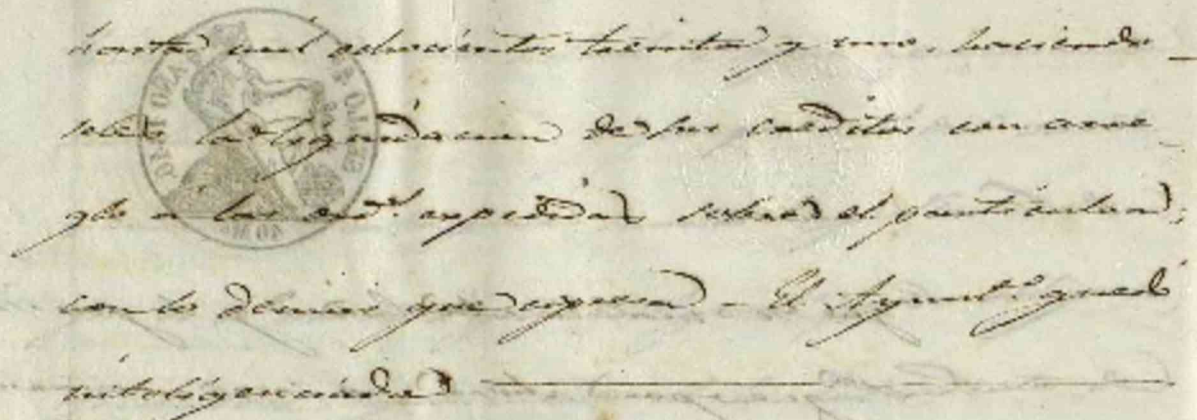 mil ochocientos treinta y uno, haciendo
la liquidacion de sus creditos con arre-
glo á las ord.s expedidas sobre el particular;
con lo demás que expresa - El Ayunt.o quedó
inteligenciado